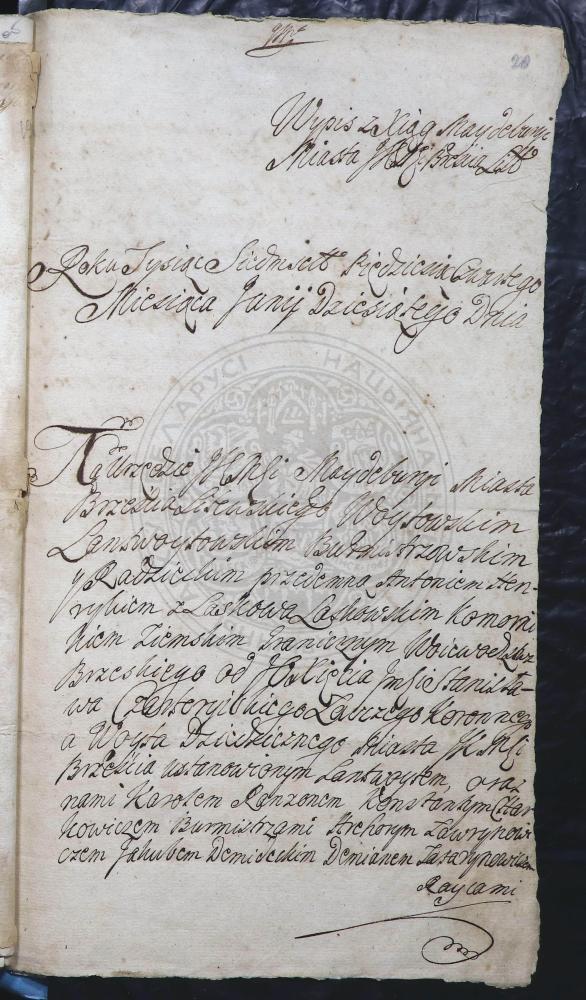 20
Wypis z Xiąg Maydeburyi
Miasta JKMci Brescia Litt
Roku Tysiąc Siedmset Piędziesiąt Czwartego
Miesiąca Junij Dziesiątego Dnia
Na Urzędzie JKMsci Maydeburyi Miasta
Brzescia Litewskiego Woytowskim
Lantwoytowskim Burmistrzowskim
y Radzieckim przedemną Antoniem Hen-
rykiem z Laskowa Laskowskim Komorni
kiem Ziemskim Granicznym Woiewodztwa
Brzeskiego od JO Xięcia Jmsci Stanisła-
wa Czartoryiskiego Łowczego Koronnego
a Woyta Dziedzicznego Miasta JKMsci
Brzescia ustanowionym Lantwoytem, oraz
nami Karolem Ranzonem, Konstantym
kowiczem Burmistrzami Ławrynowi
czem Jakubem Demideckim Demianem Tatarynowiczem
Raycami
НАЦЫЯНА ЛАРУСІ